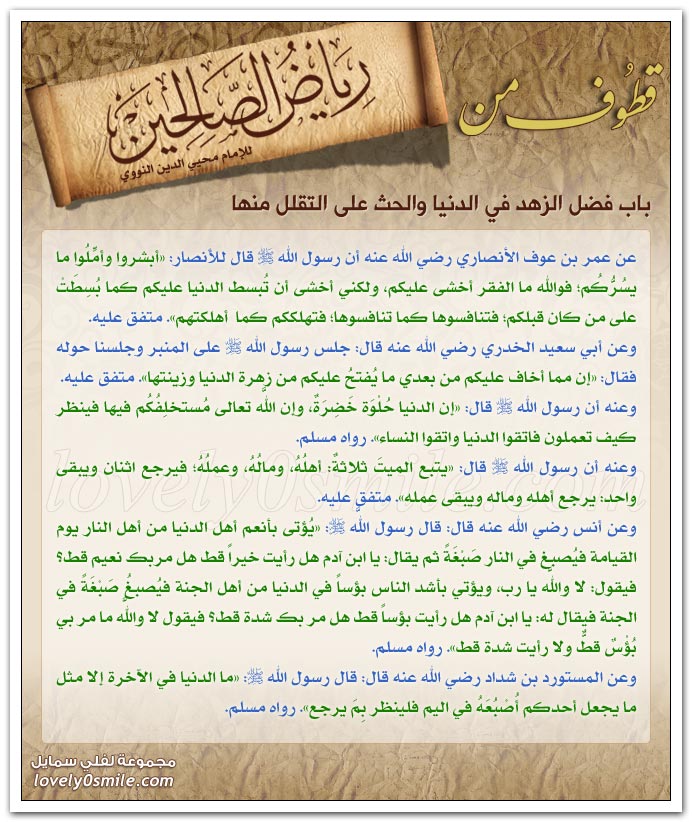 قطوف من
رياض الصالحين
للإمام محيي الدين النووي
باب فضل الزهد في الدنيا والحث على التقلل منها
عن عمر بن عوف الأنصاري رضي الله عنه أن رسول الله ﷺ قال للأنصار: «أبشروا وأمِّلُوا ما
يسُرُّكُم؛ فوالله ما الفقر أخشى عليكم، ولكني أخشى أن تُبسط الدنيا عليكم كما بُسِطَتْ
على من كان قبلكم؛ فتنافسوها كما تنافسوها؛ فتهلككم كما أهلكتهم». متفق عليه.
وعن أبي سعيد الخدري رضي الله عنه قال: جلس رسول الله ﷺ على المنبر وجلسنا حوله
فقال: «إن مما أخاف عليكم من بعدي ما يُفتحُ عليكم من زهرة الدنيا وزينتها». متفق عليه.
وعنه أن رسول الله ﷺ قال: «إن الدنيا حُلْوَة خَضِرَةٌ، وإن الله تعالى مُستخلِفُكُم فيها فينظر
كيف تعملون فاتقوا الدنيا واتقوا النساء». رواه مسلم.
وعنه أن رسول الله ﷺ قال: «يتبع الميتَ ثلاثةٌ: أهلُهُ، ومالُهُ، وعملُهُ؛ فيرجع اثنان ويبقى
واحد: يرجع أهله وماله ويبقى عمله». متفق عليه.
وعن أنس رضي الله عنه قال: قال رسول الله ﷺ: «يُؤتى بأنعم أهل الدنيا من أهل النار يوم
القيامة فيُصبغ في النار صَبْغَةً ثم يقال: يا ابن آدم هل رأيت خيراً قط هل مر بك نعيم قط؟
فيقول: لا والله يا رب، ويؤتي بأشد الناس بؤساً في الدنيا من أهل الجنة فيُصبغُ صَبْغَةً في
الجنة فيقال له: يا ابن آدم هل رأيت بؤساً قط هل مر بك شدة قط؟ فيقول لا والله ما مر بي
بُؤْسٌ قطُّ ولا رأيت شدة قط». رواه مسلم.
وعن المستورد بن شداد رضي الله عنه قال: قال رسول الله ﷺ: «ما الدنيا في الآخرة إلا مثل
ما يجعل أحدكم أُصْبُعَهُ في اليم فلينظر بِمَ يرجع». رواه مسلم.
lovely0smile.com
مجموعة لفلي سمايل
lovely0smile.com